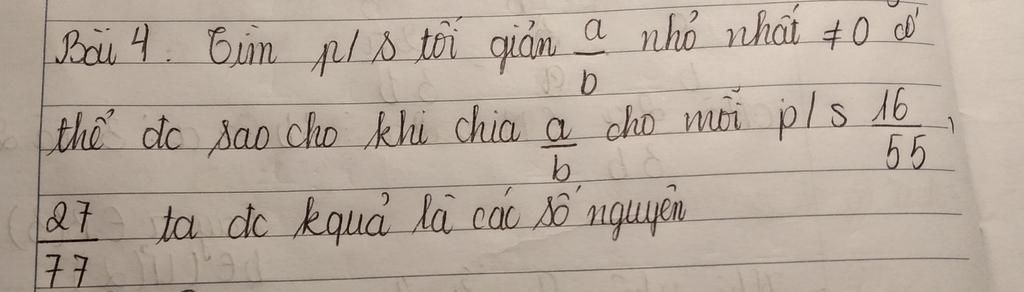 Bài 4. Tìm p/s tối giản a/b nhỏ nhất ≠ 0 có
thể đc sao cho khi chia a/b cho mỗi p/s 16/55,
27/77 ta đc kquả là các số nguyên